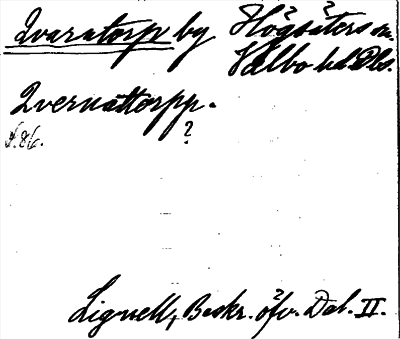 Qvarntorp by Högsäters sn.
Valbo hd Dls.
Qvernattorpp.
s. 86.
?
Lignell, Beskr. öfv. Dal. II.